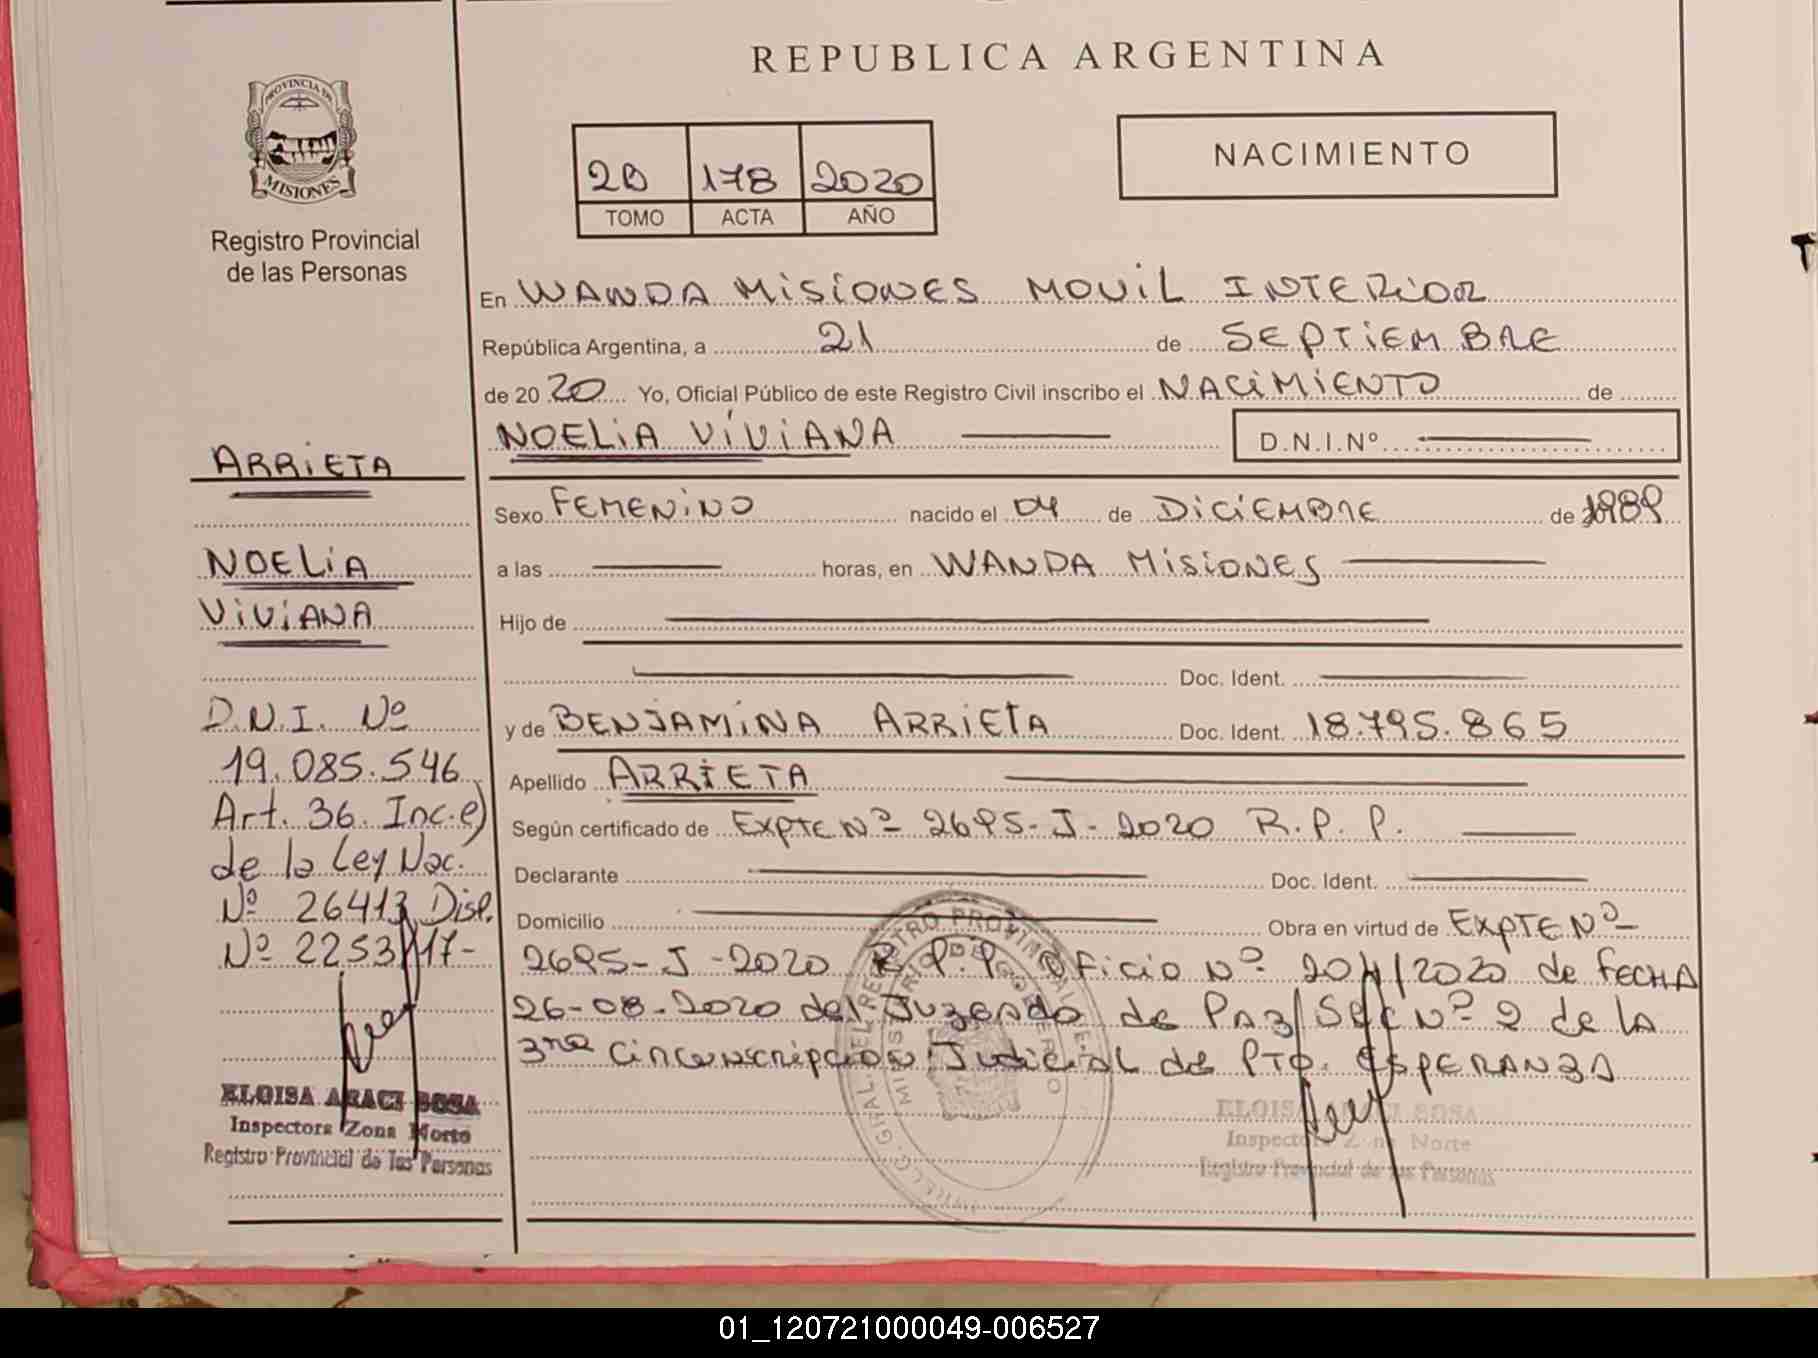 REPUBLICA ARGENTINA
PROVINCIA DE
MISIONES
Registro Provincial
de las Personas
2B 178 2020
TOMO ACTA AÑO
NACIMIENTO
En WANDA MISIONES MOVIL INTERIOR
República Argentina, a 21 de SEPTIEMBRE
de 2020 Yo, Oficial Público de este Registro Civil inscribo el NACIMIENTO de
NOELIA VIVIANA D.N.I.Nº
Sexo FEMENINO nacido el 04 de DICIEMBRE de 1989
a las horas, en WANDA MISIONES
Hijo de
Doc. Ident.
y de BENJAMINA ARRIETA Doc. Ident. 18.795.865
Apellido ARRIETA
Según certificado de EXPTE Nº 2695-J-2020 R.P.P.
Declarante Doc. Ident.
Domicilio Obra en virtud de EXPTE Nº
2695-J-2020 R.P.P. Oficio Nº 204/2020 de FECHA
26-08-2020 del Juzgado de PAZ Sec Nº 2 de la
3ra Circunscripcion Judicial de PTO. ESPERANZA
ELOISA ARACI SOSA
Inspectora Zona Norte
Registro Provincial de las Personas
ARRIETA
NOELIA
VIVIANA
D.N.I. Nº
19.085.546
Art. 36. Inc.e)
de la Ley Nac.
Nº 26413 Disp.
Nº 2253/17-
ELOISA ARACI SOSA
Inspectora Zona Norte
Registro Provincial de las Personas
01_120721000049-006527